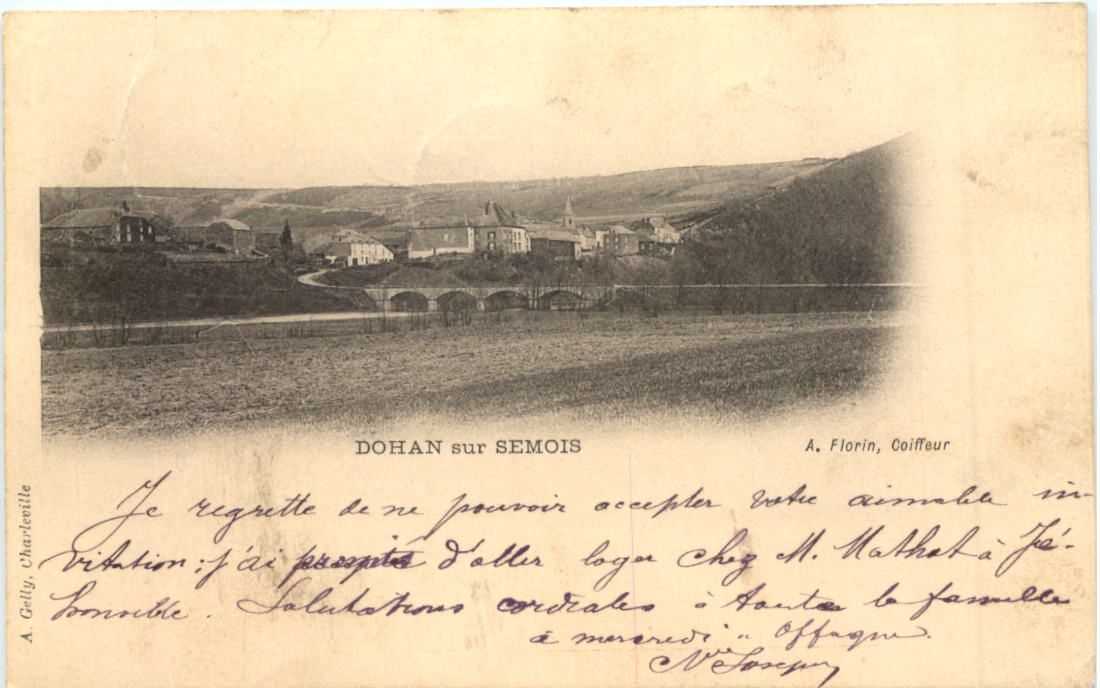 DOHAN sur SEMOIS
A. Florin, Coiffeur
A. Gelly, Charleville
Je regrette de ne pouvoir accepter votre aimable in-
vitation; j'ai promis d'aller loger chez M. Mathot à
Salutations cordiales à toute la famille
à mercredi " Offagne.